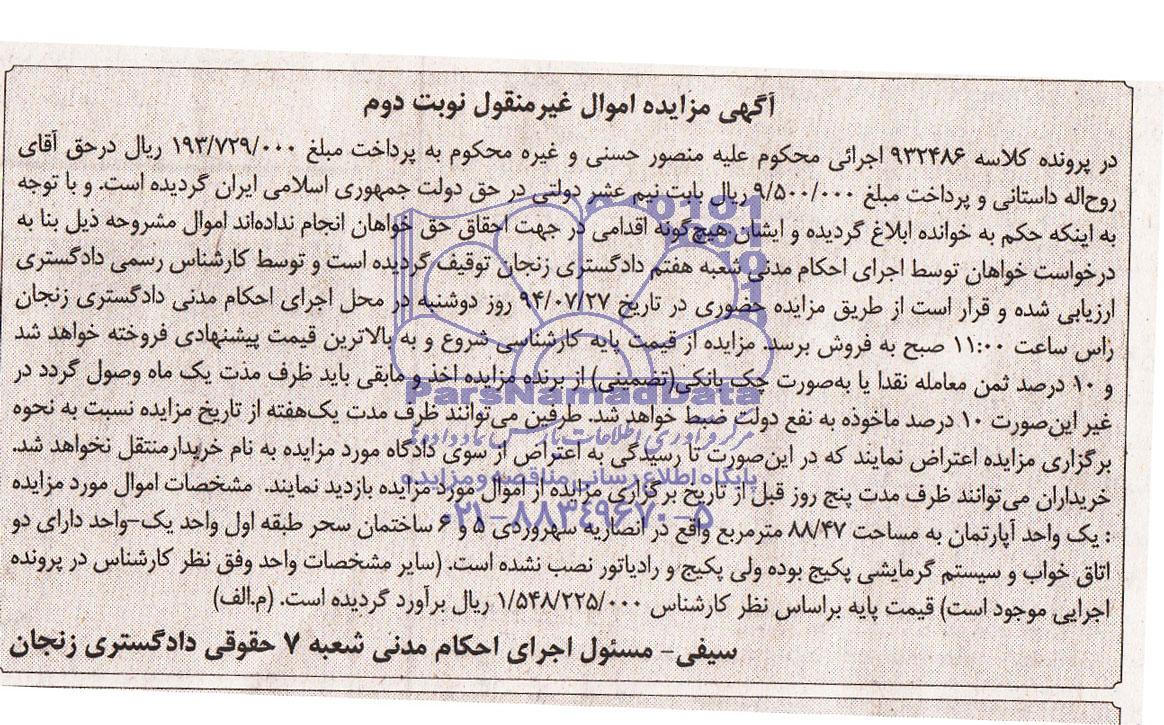 آگهی مزایده اموال غیرمنقول نوبت دوم
در پرونده کلاسه ۹۳۲۴۸۶ اجرائی محکوم علیه منصور حسنی و غیره محکوم به پرداخت مبلغ ۱۹۳/۷۲۹/۰۰۰ ریال درحق آقای
روح‌اله داستانی و پرداخت مبلغ ۹/۵۰۰/۰۰۰ ریال بابت نیم عشر دولتی در حق دولت جمهوری اسلامی ایران گردیده است. و با توجه
به اینکه حکم به خوانده ابلاغ گردیده و ایشان هیچ‌گونه اقدامی در جهت احقاق حق خواهان انجام نداده‌اند اموال مشروحه ذیل بنا به
درخواست خواهان توسط اجرای احکام مدنی شعبه هفتم دادگستری زنجان توقیف گردیده است و توسط کارشناس رسمی دادگستری
ارزیابی شده و قرار است از طریق مزایده حضوری در تاریخ ۹۴/۰۷/۲۷ روز دوشنبه در محل اجرای احکام مدنی دادگستری زنجان
راس ساعت ۱۱:۰۰ صبح به فروش برسد. مزایده از قیمت پایه کارشناسی شروع و به بالاترین قیمت پیشنهادی فروخته خواهد شد
و ۱۰ درصد ثمن معامله نقدا یا به‌صورت چک بانکی(تضمینی) از برنده مزایده اخذ و مابقی باید ظرف مدت یک ماه وصول گردد در
ParsNamadData
غیر این‌صورت ۱۰ درصد ماخوذه به نفع دولت ضبط خواهد شد. طرفین می‌توانند ظرف مدت یک‌هفته از تاریخ مزایده نسبت به نحوه
مرکز فرآوری اطلاعات پارس نماد داده‌ها
برگزاری مزایده اعتراض نمایند که در این‌صورت تا رسیدگی به اعتراض از سوی دادگاه مورد مزایده به نام خریدارمنتقل نخواهد شد.
پایگاه اطلاع رسانی مناقصه و مزایده
خریداران می‌توانند ظرف مدت پنج روز قبل از تاریخ برگزاری مزایده از اموال مورد مزایده بازدید نمایند. مشخصات اموال مورد مزایده
۰۲۱-۸۸۳۴۹۶۷۰-۵
: یک واحد آپارتمان به مساحت ۸۸/۴۷ مترمربع واقع در انصاریه سهروردی ۵ و ۶ ساختمان سحر طبقه اول واحد یک-واحد دارای دو
اتاق خواب و سیستم گرمایشی پکیج بوده ولی پکیج و رادیاتور نصب نشده است. (سایر مشخصات واحد وفق نظر کارشناس در پرونده
اجرایی موجود است) قیمت پایه براساس نظر کارشناس ۱/۵۴۸/۲۲۵/۰۰۰ ریال برآورد گردیده است. (م.الف)
سیفی- مسئول اجرای احکام مدنی شعبه ۷ حقوقی دادگستری زنجان